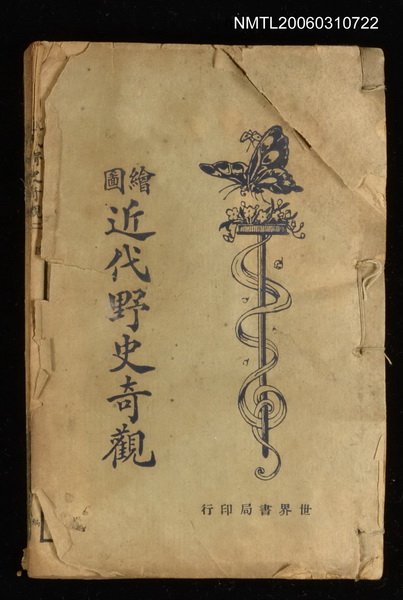 NMTL20060310722
繪圖
近代野史奇觀
世界書局印行